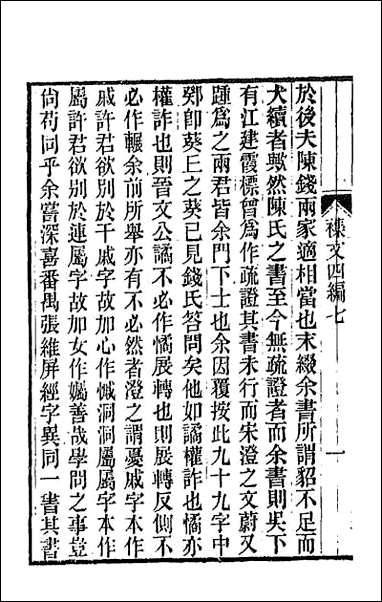 於後夫陳錢兩家適相當也末綴余書所謂貂不足而
犬續者歟然陳氏之書至今無疏證者而余書則吳下
有江建霞標曾爲作疏證其書未行而宋澄之文蔚又
踵爲之兩君皆余門下士也余因覆按此九十九字中
郊卽葵丘之葵已見錢氏答問矣他如譎權詐也憰亦
權詐也則晉文公譎不必作憰展轉也則展轉反側不
必作輾余前所舉亦有不必然者澄之謂憂戚字本作
戚許君欲別於干戚字故加心作慽洞洞屬屬字本作
屬許君欲別於連屬字故加女作孎善哉學問之事豈
尙苟同乎余嘗深喜番禺張維屏經字異同一書其書
襍文四編七
一